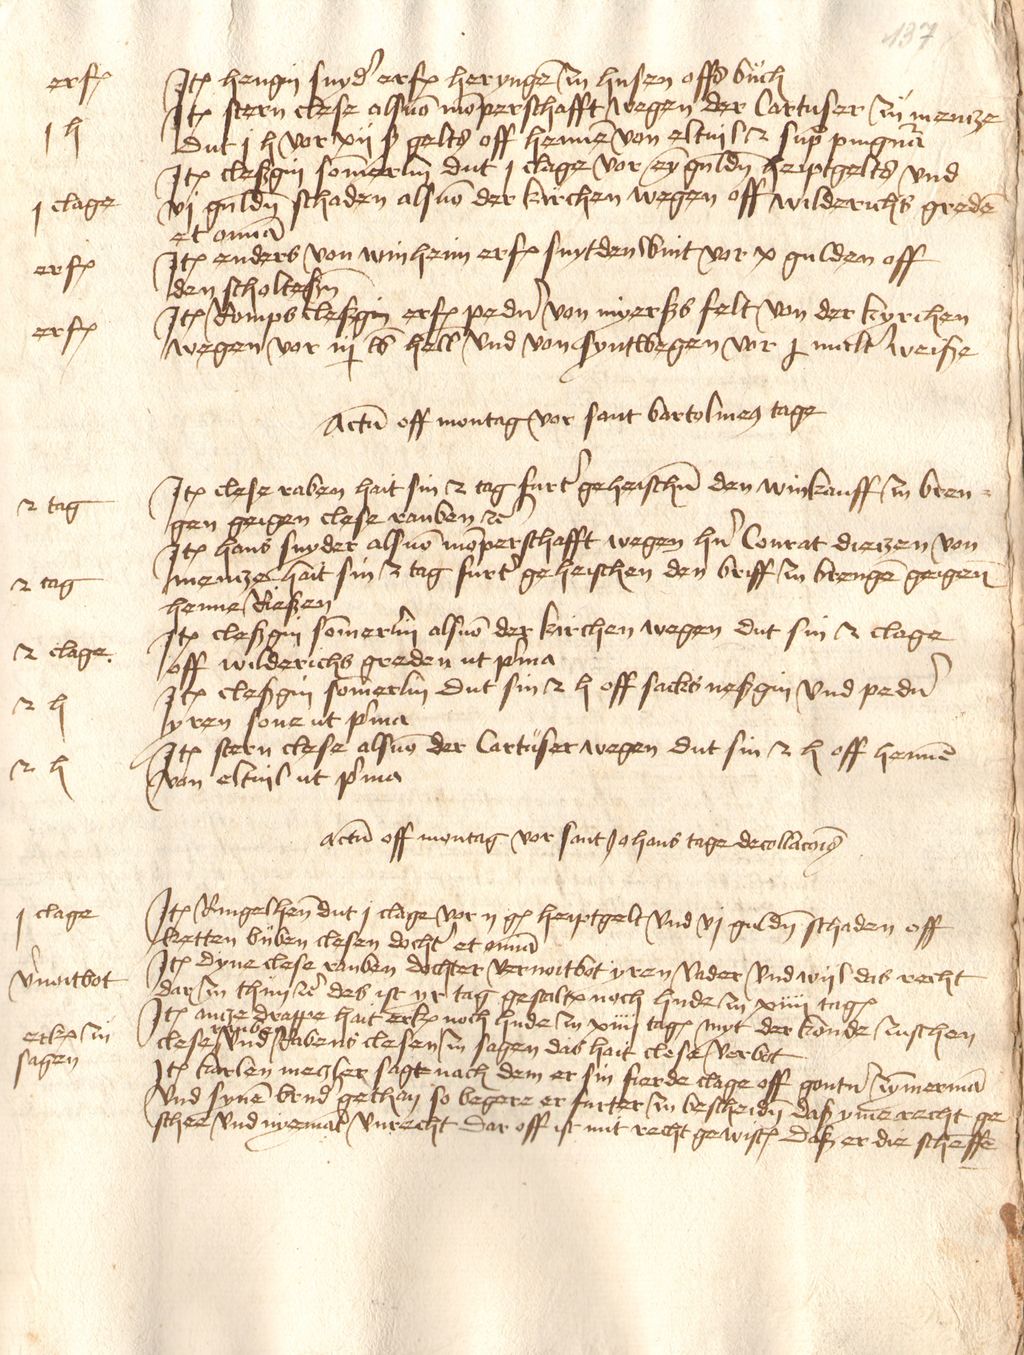 137
erf
Itē hengin snyd' erf heryngē in husen offs buch
Itē stern clese als vō momperschafft wegen der Cartuser zu mentze
1 h
dut 1 h vor xij ß gelts off hennē von eltvil 2 sup pingnā
Itē cleßgin somerlin dut 1 clage vor ey guldn heiptgelts vnd
1 clage
vj guldn schaden als vō der kirchen wegen off wilderichs gredē
et omā
erf
Itē enders von winheim erf snytdenwint vor x gulden off
den scholteßn
Itē Romps cleßgin erf ped' von myerßs felt von der kyrchen
erf
wegen vor iij lb hell' vnd von synt wegen vor j malt' weiße
Actū off montag vor sant bartolmeus tage
Itē clese raben hait sin 2 tag furt' geheischn den winkauff zu bren-
2 tag
gen geigen clese rauben rc
Itē hans snyder als vō momperschafft wegen h' Conrat dietzen von
2 tag
mentze hait sin 2 tag furt' geheischen den briff zu brengē geigen
henne Rießen
Itē cleßgin somerlin als vō der kirchen wegen dut sin 2 clage
2 clage.
off wilderichs greden ut pma
2 h
Itē cleßgin somerlin dut sin 2 h off sacks neßgin vnd ped'
yren sone ut pma
2 h
Itē stern clese als vō der Cartuser wegen dut sin 2 h off hennē
von eltvil ut pma
Actū off montag vor sant Johans tage decollacōis
1 clage
Itē Ringelhen dut 1 clage vor ij g heiptgelt vnd vj guldn schaden off
ketten buben clesen docht' et omā
v'noitbot
Itē dyne clese rauben dochter vernoitbot yren vader vnd wijl das recht
dar zu thun rc des ist yr tag gesatzt noch hude zu xiiij tagē
erk zu
Itē antze drappe hait erk noch hude zu xiiij tagē myt der konde zuschen
sagen
clese raube vnd Rabens clesen zu sagen das hait clese verbot
Itē karlen metzler sagt nach dem er sin fierde clage off gontz zymerman
vnd synē brud' gethan so begere er furter zu bescheidn daß yme recht ge
schee vnd nyemants vnrecht dar off ist mit recht gewist daß er die scheffe